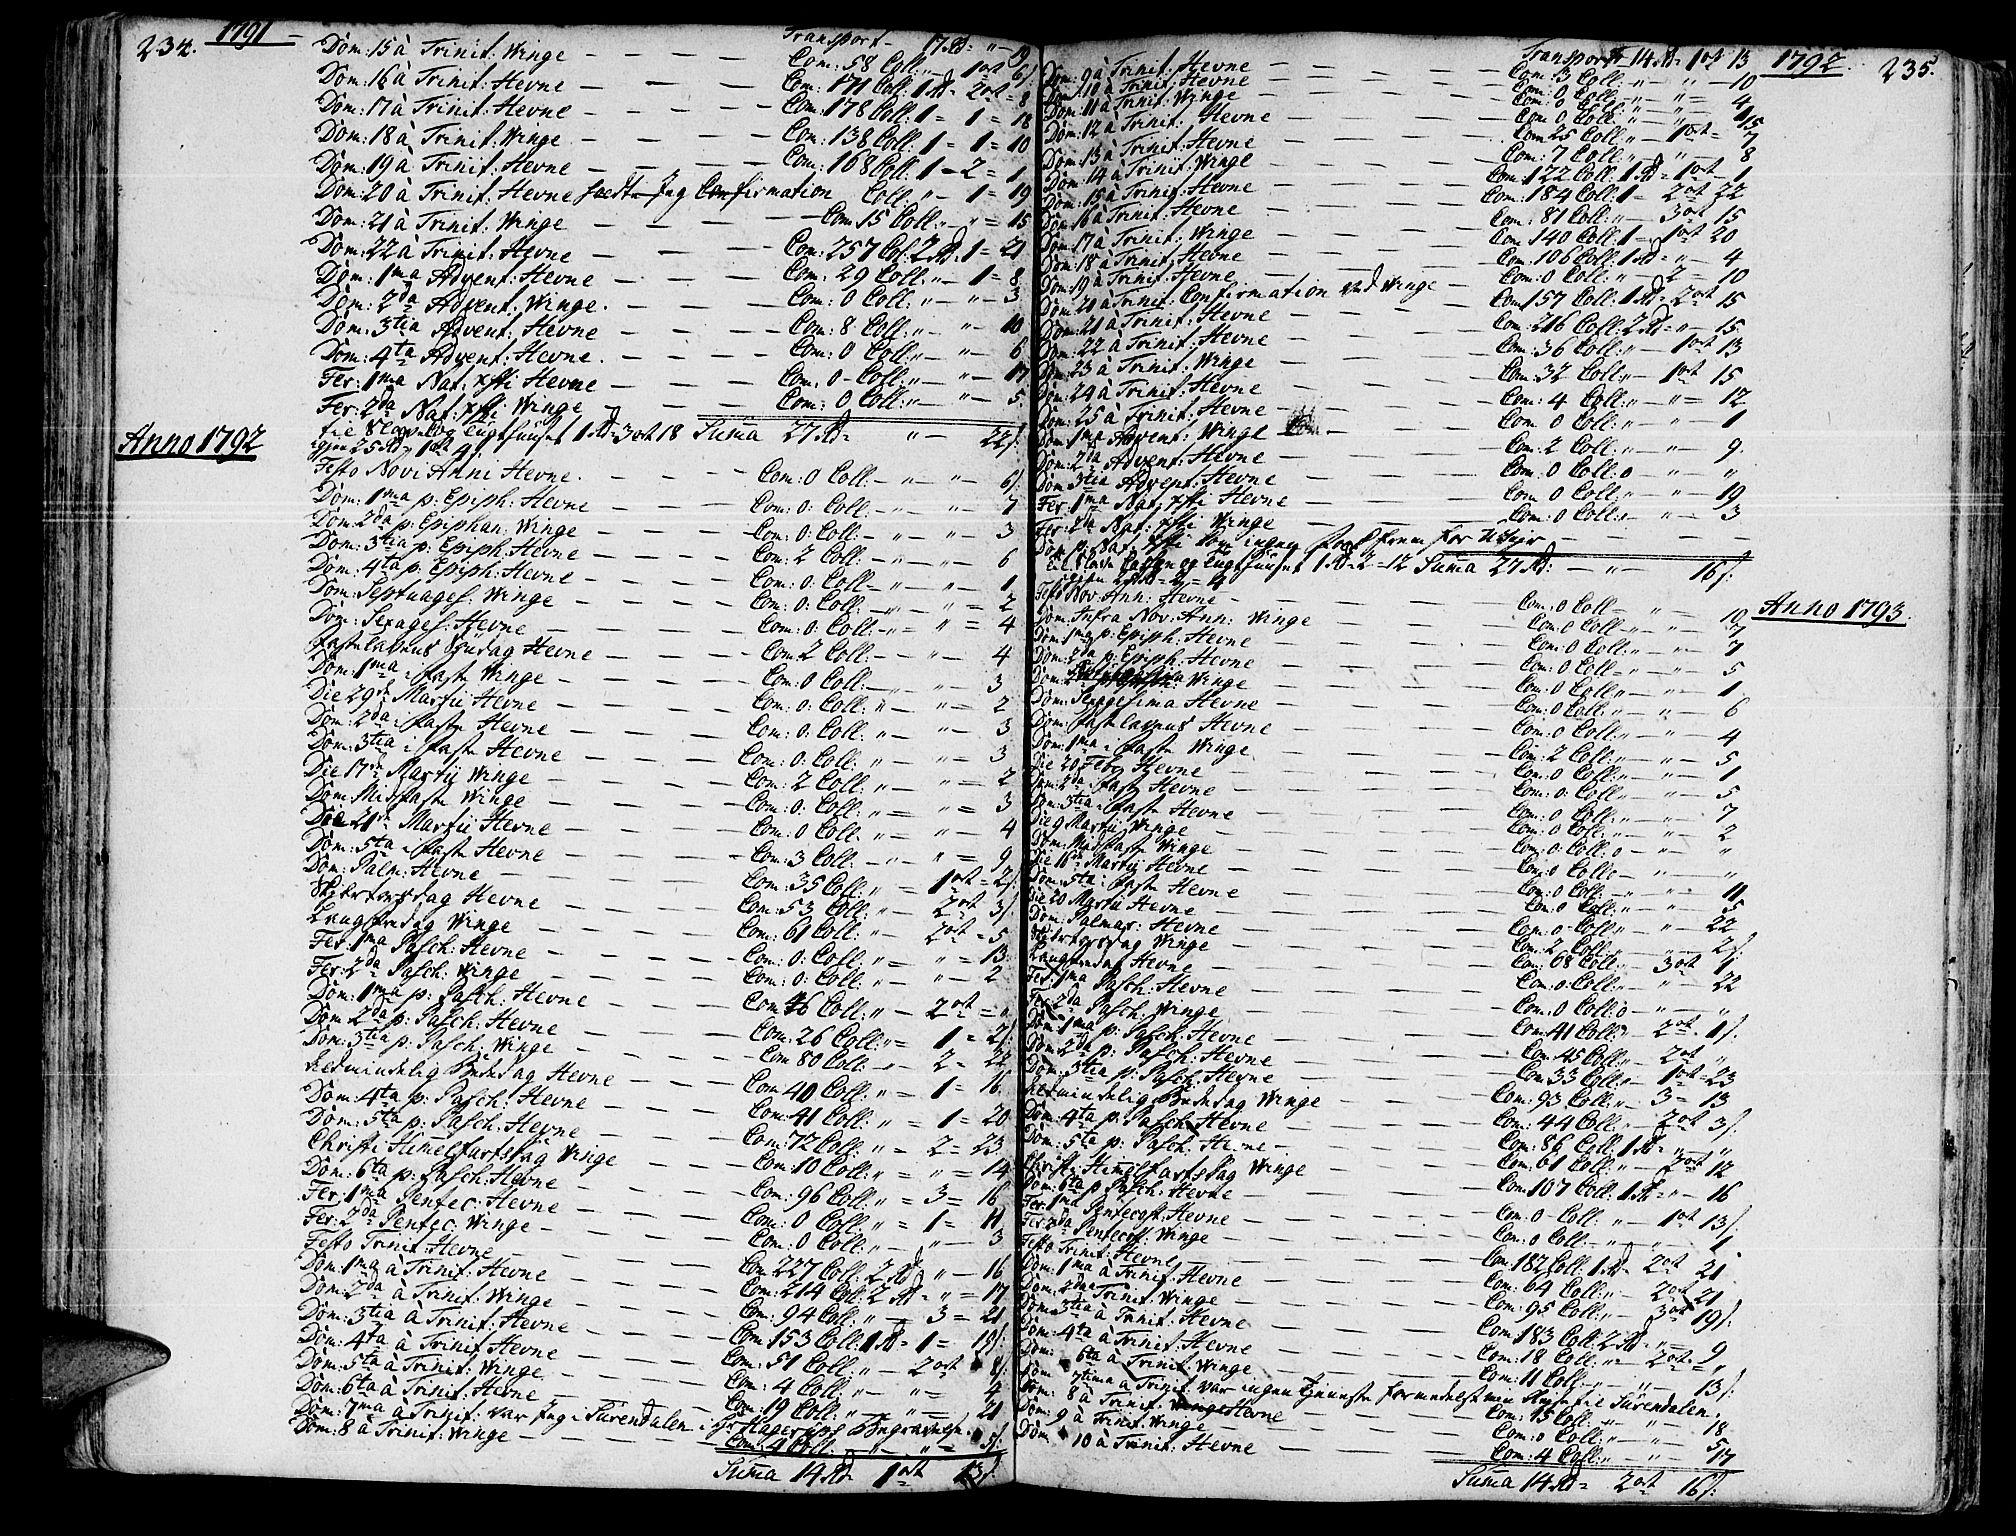 234. 1791
Transport - 17 Rd: " - 19
Dom: 15 à Trinit: Winge — Com: 58 Coll: " - 1 ort 6
Dom: 16 à Trinit: Hevne — Com: 171 Coll: 1 Rd = 2 ort = 8
Dom: 17 à Trinit: Hevne — Com: 178 Coll: 1 = 1 = 18
Dom: 18 à Trinit: Winge — Com: 138 Coll: 1 = 1 = 10
Dom: 19 à Trinit: Hevne — Com: 168 Coll: 1 = 2 = 1
Dom: 20 à Trinit: Hevne Confirmation Coll: " - 1 = 19
Dom: 21 à Trinit: Winge — Com: 15 Coll: " " = 15
Dom: 22 à Trinit: Hevne — Com: 257 Col: 2 Rd: 1 = 21
Dom: 1ma Advent: Hevne — Com: 29 Coll: " - 1 = 8
Dom: 2da Advent: Winge — Com: 0 Coll: " - " - 3
Dom: 3tia Advent: Hevne — Com: 8 Coll: " - " - 10
Dom: 4ta Advent: Hevne — Com: 0 Coll: " - " - 6
Fer: 1ma Nat: Xsti Hevne — Com: 0 - Coll: " - " - 17
Fer: 2da Nat: Xsti Winge — Com: 0 Coll: " - " - 5
1 Rd = 3 ort 18 Summa 27 Rd = " - 22 s.
Anno 1792
Festo Novi Anni Hevne — Com: 0 Coll: - " - " - 6 s.
Dom: 1ma p: Epiph: Hevne — Com: 0: Coll: - " - " - 7
Dom: 2da p: Epiphan: Winge — Com: 0: Coll: - " - " - 3
Dom: 3tia p: Epiph: Hevne — Com: 2 Coll: - " - " - 6
Dom: 4ta p: Epiph: Hevne — Com: 0: Coll: - " - " - 1
Dom: Septuages: Winge — Com: 0: Coll: - " - " = 2
Dom: Sexages: Hevne — Com: 0: Coll: - " = " = 4
Fastelavns Søndag Hevne — Com: 2 Coll: - " - " - 4
Dom: 1ma i faste Winge — Com: 0 Coll: - " - " - 3
Die 29de Martii Hevne — Com: 0: Coll: " - " = 2
Dom: 2da i faste Hevne — Com: 0: Coll: " - " - 3
Dom: 3tia i faste Hevne — Com: 0: Coll: " - " = 3
Die 17de Martii Winge — Com: 2 Coll: " - " = 2
Dom: Midfaste Winge — Com: 0: Coll: " = " = 3
Die 21de Martii Hevne — Com: 0 Coll: " = " - 4
Dom: 5ta i faste Hevne — Com: 3 Coll: - " - " = 9
Dom: Palm: Hevne — Com: 35 Coll: " = 1 ort = 2 s.
Skiertorsdag Hevne — Com: 53 Coll: " - 2 ort 3 s.
Langfredag Winge — Com: 61 Coll: " - 2 ort = 5
Fer: 1ma Pasch: Hevne — Com: 0: Coll: " = " = 13
Fer: 2da Pasch: Winge — Com: 0: Coll: " - " - 2
Dom: 1ma p: Pasch: Hevne — Com: 46 Coll: " - 2 ort = "
Dom: 2da p: Pasch: Hevne — Com: 26 Coll: " = 1 = 2 s.
Dom: 3tia p: Pasch: Winge — Com: 80 Coll: " - 2 = 22
Almindelig Bededag Hevne — Com: 40 Coll: " = 1 = 16
Dom: 4ta p: Pasch: Hevne — Com: 41 Coll: " = 1 = 20
Dom: 5ta p: Pasch: Hevne — Com: 72 Coll: " = 2 = 23
Christi Himelfartsdag Winge — Com: 10 Coll: " = " = 14
Dom: 6ta p: Pasch: Hevne — Com: 96 Coll: " = 3 = 16
Fer: 1ma Pentec: Hevne — Com: 0 Coll: " = 1 = 11
Fer: 2da Pentec: Winge — Com: 0 Coll: " - " - 3
Festo Trinit: Hevne — Com: 227 Coll: 2 Rd " - 16
Dom: 1ma à Trinit: Hevne — Com: 214 Coll: 2 Rd = " = 17
Dom: 2da à Trinit: Winge — Com: 94 Coll: " = 3 = 21
Dom: 3tia à Trinit: Hevne — Com: 153 Coll: 1 Rd = 1 = 19 s.
Dom: 4ta à Trinit: Hevne — Com: 51 Coll: " - 2 ort 8 s.
Dom: 5ta à Trinit: Winge — Com: 4 Coll: " - " = 4
Dom: 6ta à Trinit: Hevne — Com: 19 Coll: " - " = 21
Dom: 7ma à Trinit: var Jeg i Surendalen i Hr Hagerups Begravelse.
Dom: 8 à Trinit: Winge — Com: 4 Coll: " - " = 5 s.
Summa 14 Rd 1 ort 13 s.
Transport 14 Rd = 1 ort 13 1792 235.
Dom: 9 à Trinit: Hevne — Com: 3 Coll: " - " - 10
Dom: 10 à Trinit: Hevne — Com: 0 Coll: " - " = 4
Dom: 11 à Trinit: Winge — Com: 0 Coll: " - "
Dom: 12 à Trinit: Hevne — Com: 25 Coll: " - 1 ort = 7
Dom: 13 à Trinit: Hevne — Com: 7 Coll: " - " - 8
Dom: 14 à Trinit: Winge — Com: 122 Coll: 1 Rd = 1 ort - 1
Dom: 15 à Trinit: Hevne — Com: 184 Coll: 1 = 2 ort 22
Dom: 16 à Trinit: Hevne — Com: 81 Coll: " - 3 ort 15
Dom: 17 à Trinit: Winge — Com: 140 Coll: 1 = 1 ort 20
Dom: 18 à Trinit: Hevne — Com: 106 Coll: 1 Rd = " - 4
Dom: 19 à Trinit: Hevne — Com: 0 Coll: " - 2 = 10
Dom: 20 à Trinit: Confirmation ved Winge — Com: 157 Coll: 1 Rd = 2 ort 15
Dom: 21 à Trinit: Hevne — Com: 216 Coll: 2 Rd = " - 15
Dom: 22 à Trinit: Hevne — Com: 36 Coll: " - 1 ort 13
Dom: 23 à Trinit: Winge — Com: 32 Coll: " - 1 ort 15
Dom: 24 à Trinit: Hevne — Com: 4 Coll: " - " = 12
Dom: 25 à Trinit: Hevne — Com: 0 Coll: " - " - 1
Dom: 1ma Advent: Winge — Com: 2 Coll: " - " - 9
Dom: 2da Advent: Hevne — Com: 0 Coll: 0 " "
Dom: 3tia Advent: Hevne — Com: 0 Coll: " - " - 19
Fer: 1ma Nat: Xsti Hevne — Com: 0 Coll: " - " - 3
Fer: 2da Nat: Xsti Winge —
Dom: p: Nat: Xsti kom ingen Folk frem for
1 Rd = 2 = 12 Summa 27 Rd: - " - 16 s.
Anno 1793
Festo Nov: Ann: Hevne — Com: 0 Coll: - " - 19
Dom: Infra Nov: Ann: Winge — Com: 0 Coll: " - " - 7
Dom: 1ma p: Epiph: Hevne — Com: 0 Coll: " - " - 7
Dom: 2da p: Epiph: Hevne — Com: 0 Coll: " - " - 5
Dom: Winge — Com: 0 Coll: " - " - 1
Dom: Sexagesima Hevne — Com: 0 Coll: " - " - 6
Dom: Fastelavns Hevne — Com: 0 Coll: " - " - 4
Dom: 1ma i faste Winge — Com: 2 Coll: " - " - 5
Die 20 Febr: Hevne — Com: 0 Coll: " - " - 1
Dom: 2da i faste Hevne — Com: 0: Coll: " - " - 5
Dom: 3tia i faste Hevne — Com: 0 Coll: " - " - 7
Die 9 Martii Winge — Com: 0 Coll: " - " - 2
Dom: Midfaste Winge — Com: 0: Coll: 0 - " "
Die Martii Hevne — Com: 0 Coll:
Dom: 5ta i faste Hevne — Com: 0 Coll: - " - 11
Die 20 Martii Hevne — Com: 0 Coll: " - " - 5
Dom: Palmar: Hevne — Com: 0 Coll: " - " - 22
Skiertorsdag Winge — Com: 2 Coll: " - " - 2 s.
Langfredag Hevne — Com: 68 Coll: " 3 ort 1
Fer: 1ma Pasch: Hevne — Com: 0: Coll: " - " - 22
Fer: 2da Pasch: Winge — Com: 0 Coll: 0 - " "
Dom: 1ma p: Pasch: Hevne — Com: 41 Coll: " 2 ort 1 s.
Dom: 2da p: Pasch: Hevne — Com: 45 Coll: " - 2 ort "
Dom: 3tia p: Pasch: Hevne — Com: 33 Coll: " - 1 ort = 23
Almindelig Bededag Winge — Com: 93 Coll: " - 3 = 13
Dom: 4ta p: Pasch: Hevne — Com: 44 Coll: " - 2 ort 3 s.
Dom: 5ta p: Pasch: Hevne — Com: 86 Coll: 1 Rd = " - "
Christi Himelfartsdag Winge — Com: 61 Coll: " - 2 ort 12
Dom: 6ta p: Pasch: Hevne — Com: 107 Coll: 1 Rd = " - 16
Fer: 1ma Pentecost: Hevne — Com: 0 - Coll: " - 1 ort 13 s.
Fer: 2da Pentecost: Winge — Com: 0 Coll: " - " - 1
Festo Trinit: Hevne — Com: 182 Coll: 1 Rd = 2 ort 21
Dom: 1ma à Trinit: Hevne — Com: 64 Coll: " - 2 ort 21
Dom: 2da Trinit: Winge — Com: 95 Coll: " - 3 ort 19 s.
Dom: 3tia à Trinit: Hevne — Com: 183 Coll: 2 Rd = " = 9
Dom: 4ta à Trinit: Hevne — Com: 18 Coll: " - 2 ort = "
Dom: 6ta à Trinit: Winge — Com: 11 Coll: - " - " - 13 s.
Dom: 7tima à Trinit: var ingen Tieneste formedelst min Reise til Surendalen.
Dom: 8 à Trinit: Hevne — Com: 15 Coll: " - " - 18
Dom: 9 à Trinit: Winge — Com: 0 Coll: " - " - 5
Dom: 10 à Trinit: Hevne — Com: 4 Coll: " - " - 17
Summa 14 Rd = 2 ort 16 s.